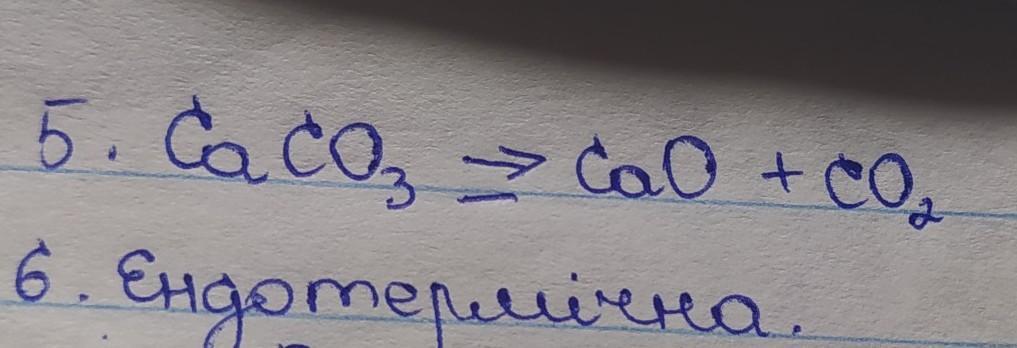 5. CaCO₃ → CaO + CO₂
6. Ендотермічна.